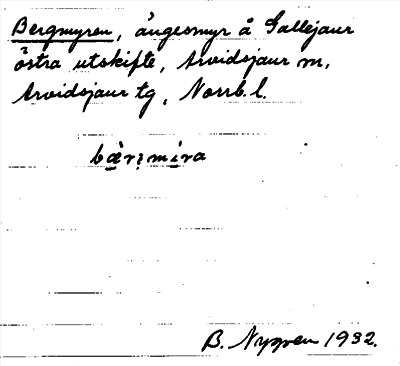 Bergmyren, ängesmyr å Gallejaur
östra utskifte, Arvidsjaur sn,
Arvidsjaur tg, Norrb. l.
bæ̀rjmìra
B. Nygren 1932.